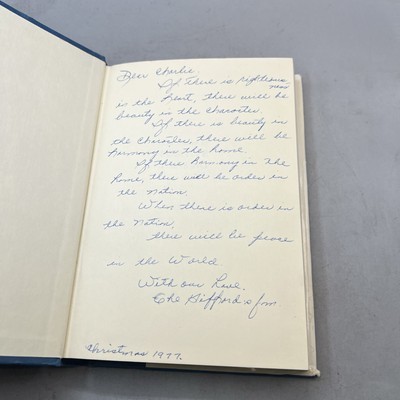 Dear Charlie.
If there is righteous
ness
in the heart, there will be
beauty in the character.
If there is beauty in
the character, there will be
harmony in the home.
If there harmony in the
home, there will be order in
the Nation.
When there is order in
the Nation,
there will be peace
in the World
With our Love,
The Giffords from
Christmas 1977.